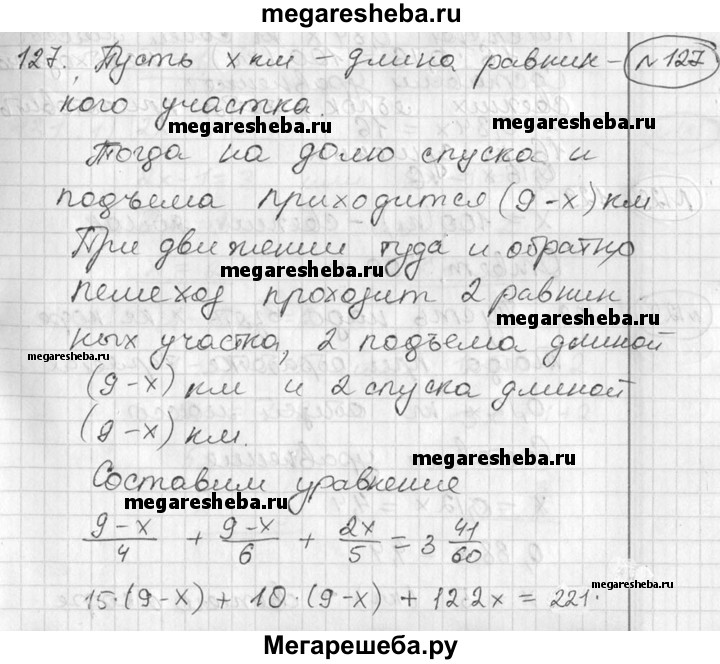 megaresheba.ru
127. Пусть x км – длина равнин- №127
ного участка.
megaresheba.ru megaresheba.ru
Тогда на долю спуска и
подъема приходится (9-x) км
При движении туда и обратно
megaresheba.ru
пешеход проходит 2 равнин-
megaresheba.ru
ных участка, 2 подъема длиной
megaresheba.ru
(9-x) км и 2 спуска длиной
(9-x) км.
megaresheba.ru
Составим уравнение
megaresheba.ru
(9-x)/4 + (9-x)/6 + 2x/5 = 3 41/60
megaresheba.ru
15·(9-x) + 10·(9-x) + 12·2x = 221.
Мегарешеба.ру